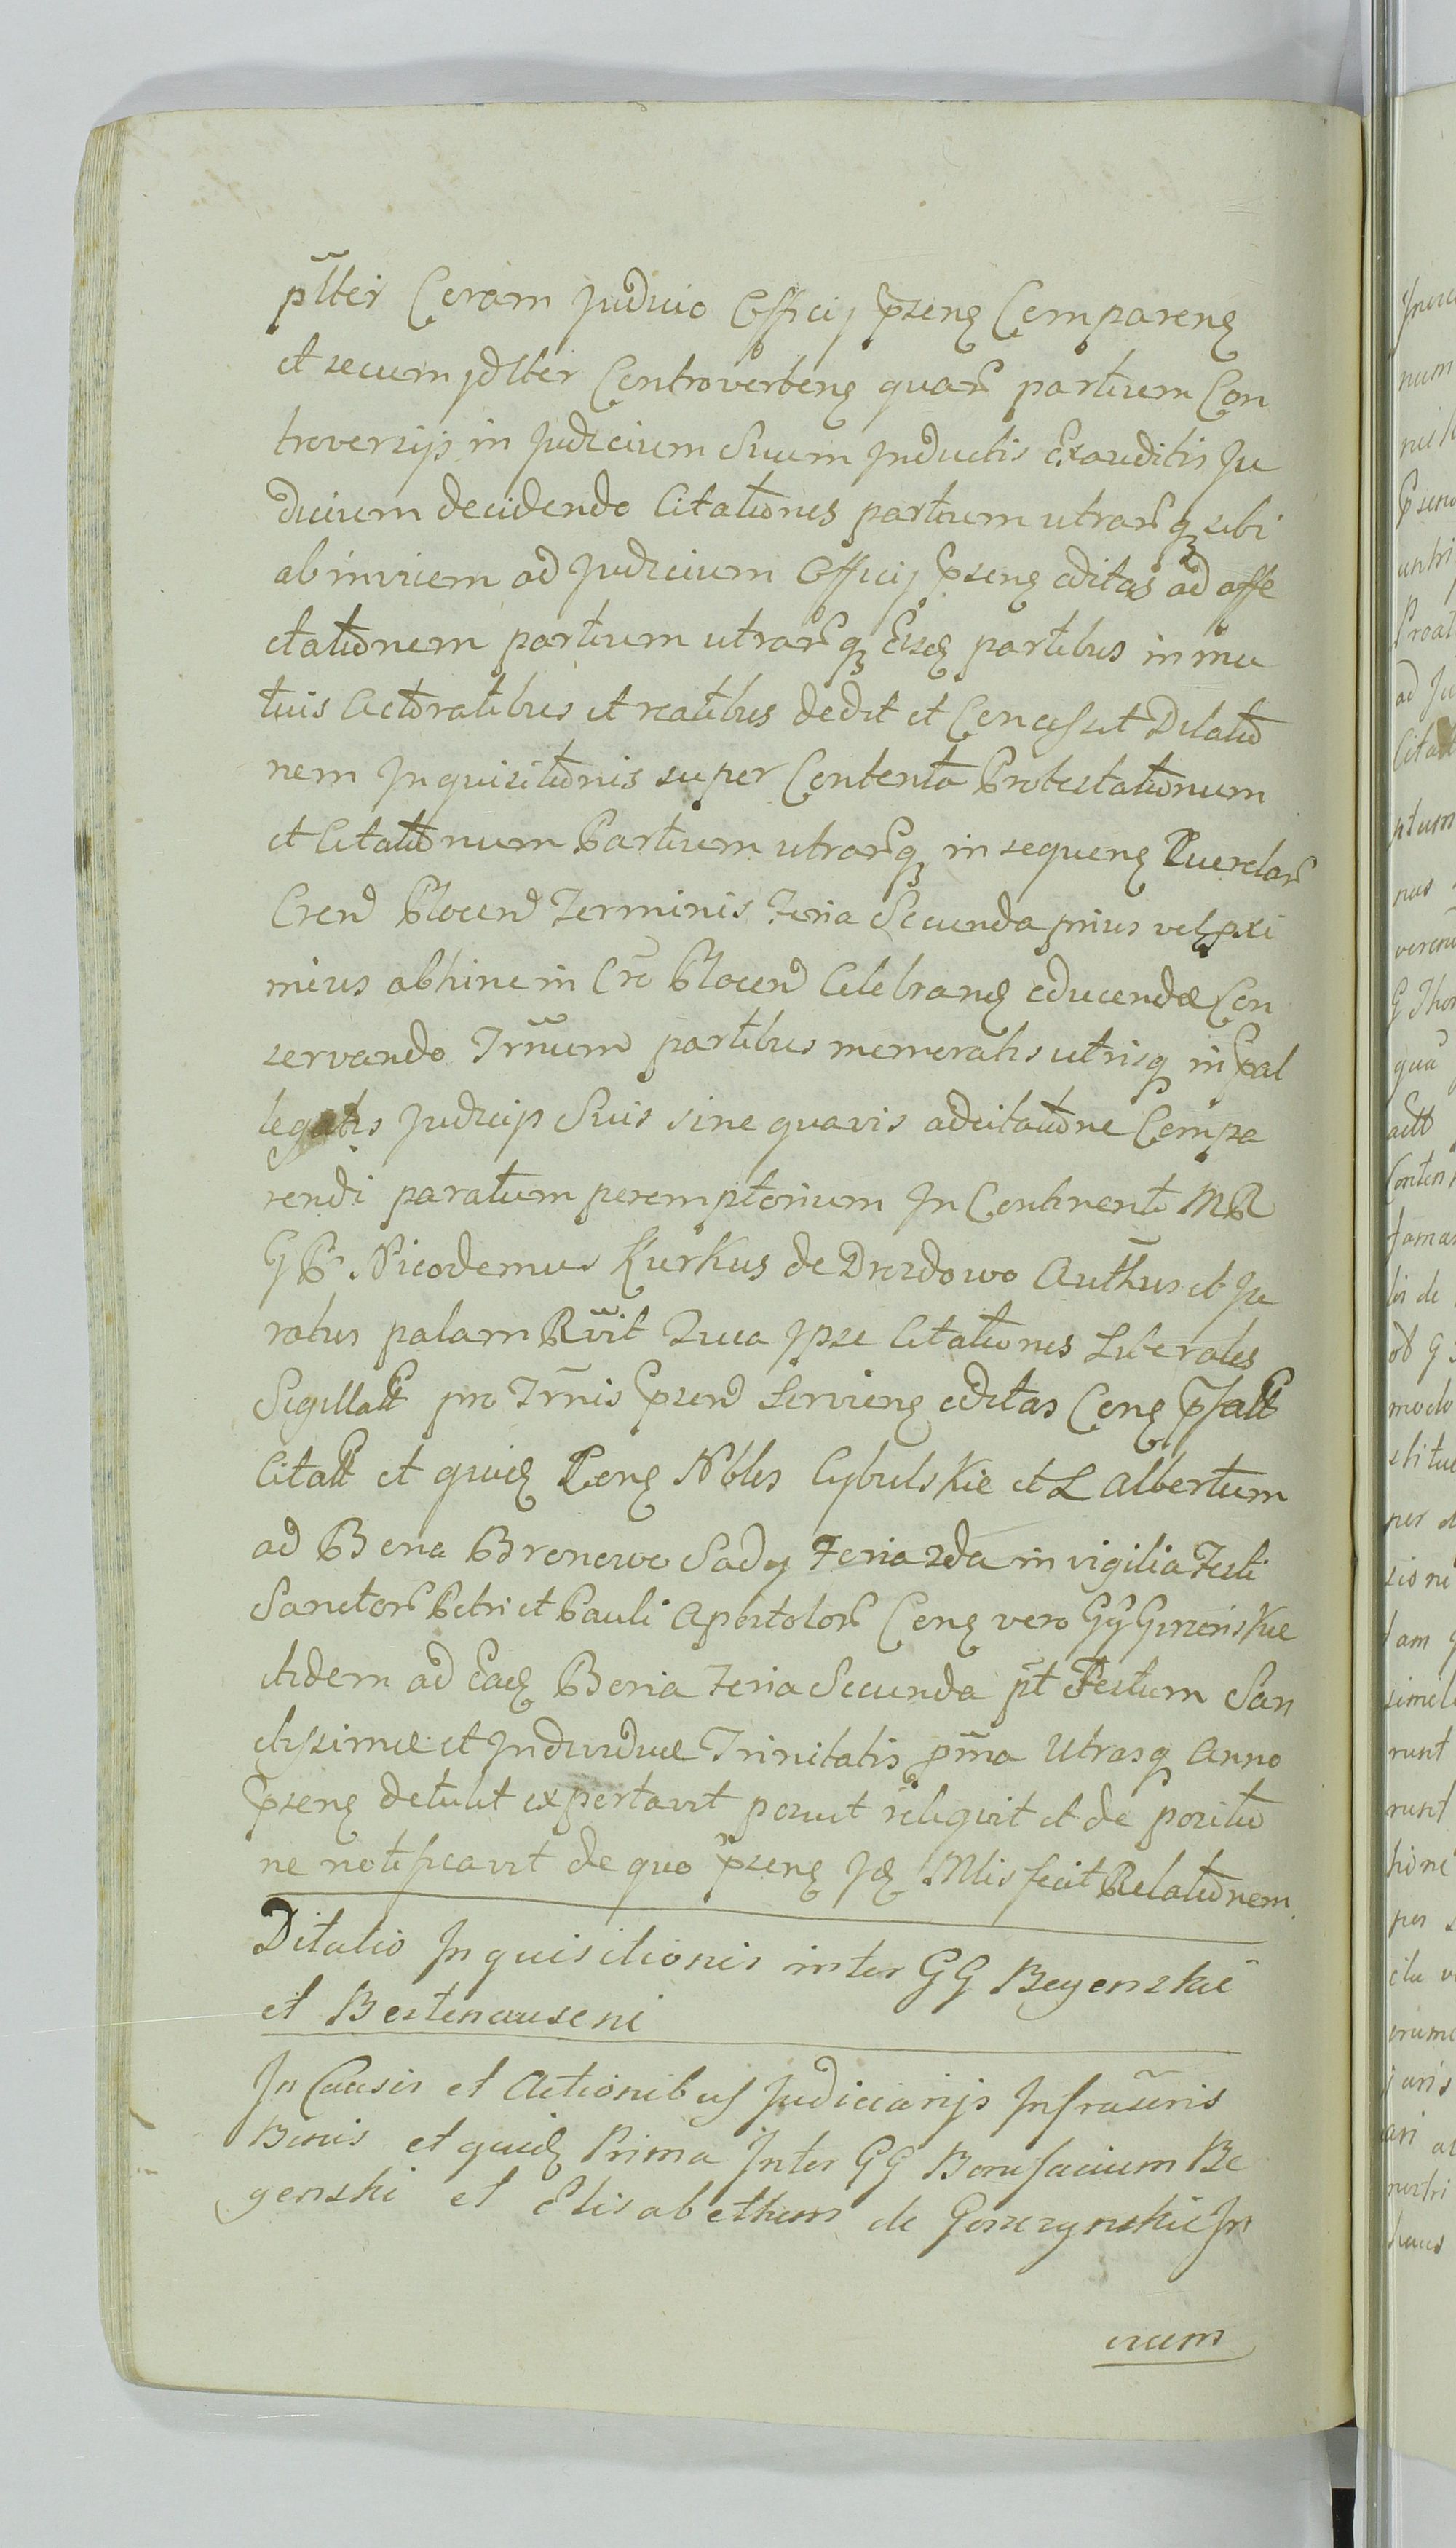 pĩter Coram Judicio Officij Prseng Compareng
et secum Jdlter Controverteng quar partium Con
troversijs in Judicium Suum Inductis Exauditis Ju
dicium decidendo Citationes partium utrarq sibi
ab invicem ad Judicium Officij Prseng editas ad affe
ctationem partium utrarq Eisd partibus in mu
tuis Actoratibus et reatibus dedit et Concessit Dilatio
nem Inquisitionis super Contenta Protestationum
et Citationum Partium utrarq in sequeng Querelar
Cren Plocen Terminis Feria Secunda prius vel proxi
mius abhinc in Cre Plocen Celebrand educendæ Con
servando Trnum partibus memoratis utrisq in Pral
legatis Judicijs Suis sine quavis adcitatione Compa
rendi paratum peremptorium In Continenti MR
GPr Nicodemus Kurkus de Drozdowo Authus et Ju
ratus palam Rvit Quia Ipse Citationes Literales
Sigillatt pro Trnis Prsen Servieng editas Cong Prfatt
Citatt et quid Cong Nbles Cybulskie et L Albertum
ad Bona Bronowo Sady Feria 2da in vigilia Festi
Sanctor Petri et Pauli Apostolor Cong vero GG Gorzenskie
itidem ad Ead Bona Feria Secunda pt Festum San
ctissimæ et Individuæ Trinitatis pma Utrasq Anno
Prseng detulit exportavit posuit reliquit et de positio
ne notificavit de quo Prseng Id Mlis fecit Relationem.
Dilatio Inquisitionis inter GG Begenskie
et Bestenauseni
In Causis et Actionibus Judiciarijs Infrascris
Binis et quid Prima Inter GG Bonifacium Be
genski et Elisabetham de Gorzynskie In
rum